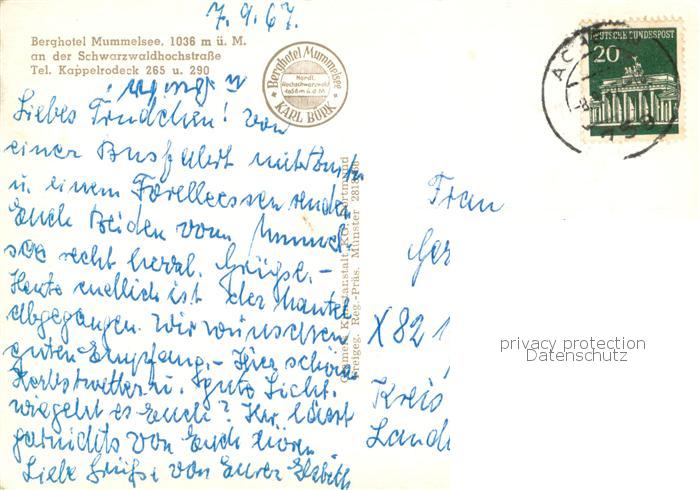 7.9.67.
Berghotel Mummelsee, 1036 m ü. M.
an der Schwarzwaldhochstraße
Tel. Kappelrodeck 265 u. 290
Berghotel Mummelsee
Nördl.
Hochschwarzwald
KARL BÜRK
DEUTSCHE BUNDESPOST
20
Liebes Trudchen! Von
einer Busfahrt mit
u. einem Forellenessen senden
Euch Beiden vom Mummel-
see recht herzl. Grüße. –
Heute endlich ist der Mantel
abgegangen. Wir wünschen
guten Empfang. – Hier schön
Herbstwetter u. gute Sicht.
wie geht es Euch? Ihr lasst
garnichts von Euch hören
Liebe Grüße von Eurer Elsbeth
Cramers Kunstanstalt KG, Dortmund
Freigeg. Reg.-Präs. Münster
Frau
Ger
X 82 1
Kreis
Land
privacy protection
Datenschutz